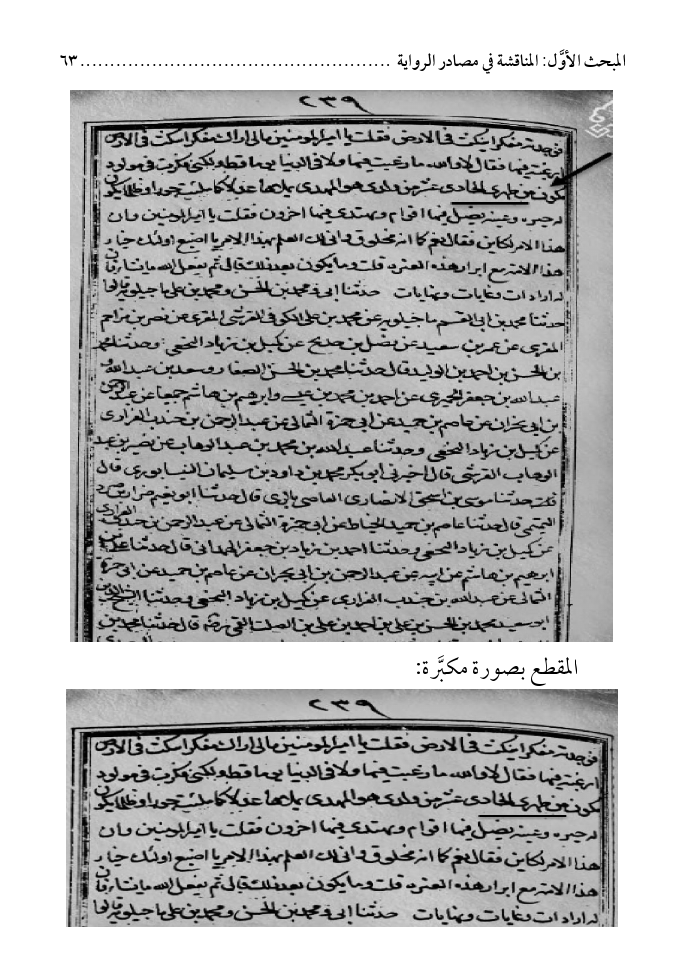 المبحث الأوَّل: المناقشة في مصادر الرواية .................................................... ٦٣
٢٣٩
فوجدته مفكرا ينكت في الارض فقلت يا امير المومنين مالي اراك مفكرا تنكت في الارض
ارغبة فيها فقال لا والله ما رغبت فيها ولا في الدنيا يوما قط ولكني فكرت في مولود
يكون من ظهري الحادي عشر من ولدي هو المهدي يملاها عدلا كما ملئت جورا وظلما تكون
له حيرة وغيبة يضل فيها اقوام ويهتدي فيها اخرون فقلت يا امير المومنين وان
هذا الامر لكاين فقال نعم كما انه مخلوق واني لك العلم بهذا الامر يا اصبغ اولئك خيار
هذا الامة مع ابرار هذه العترة قلت وما يكون بعد ذلك قال ثم يفعل الله ما يشاء فان
له ارادات وغايات ونهايات حدثنا ابي ومحمد بن الحسن ومحمد بن علي ماجيلويه قالوا
حدثنا محمد بن ابي القسم ماجيلويه عن محمد بن علي الكوفي القرشي المقري عن نصر بن مزاحم
المنقري عن عمر بن سعيد عن فضيل بن خديج عن كميل بن زياد النخعي وحدثنا محمد
بن الحسن بن احمد بن الوليد قال حدثنا محمد بن الحسن الصفار وسعد بن عبد الله و
عبد الله بن جعفر الحميري عن احمد بن محمد بن عيسى وابرهيم بن هاشم جميعا عن عبد الرحمن
بن ابي نجران عن عاصم بن حميد عن ابي حمزة الثمالي عن عبد الرحمن بن جندب الفزاري
عن كميل بن زياد النخعي وحدثنا عبد الله بن محمد بن عبد الوهاب عن نصير بن عبد
الوهاب القرشي قال اخبرني ابو بكر محمد بن داود بن سليمان النيسابوري قال
حدثنا موسى بن اسحق الانصاري القاضي بالري قال حدثنا ابو نعيم ضرار بن صرد
التيمي قال حدثنا عاصم بن حميد الحناط عن ابي حمزة الثمالي عن عبد الرحمن بن جندب الفزاري
عن كميل بن زياد النخعي وحدثنا احمد بن زياد بن جعفر الهمداني قال حدثنا علي بن
ابرهيم بن هاشم عن ابيه عن عبد الرحمن بن ابي نجران عن عاصم بن حميد عن ابي حمزة
الثمالي عن عبد الله بن جندب الفزاري عن كميل بن زياد النخعي وحدثنا الشيخ
ابو سعيد محمد بن الحسن بن علي بن احمد بن علي بن الصلت القمي رضه قال حدثنا محمد بن
المقطع بصورة مكبَّرة:
٢٣٩
فوجدته مفكرا ينكت في الارض فقلت يا امير المومنين مالي اراك مفكرا تنكت في الارض
ارغبة فيها فقال لا والله ما رغبت فيها ولا في الدنيا يوما قط ولكني فكرت في مولود
يكون من ظهري الحادي عشر من ولدي هو المهدي يملاها عدلا كما ملئت جورا وظلما تكون
له حيرة وغيبة يضل فيها اقوام ويهتدي فيها اخرون فقلت يا امير المومنين وان
هذا الامر لكاين فقال نعم كما انه مخلوق واني لك العلم بهذا الامر يا اصبغ اولئك خيار
هذا الامة مع ابرار هذه العترة قلت وما يكون بعد ذلك قال ثم يفعل الله ما يشاء فان
له ارادات وغايات ونهايات حدثنا ابي ومحمد بن الحسن ومحمد بن علي ماجيلويه قالوا